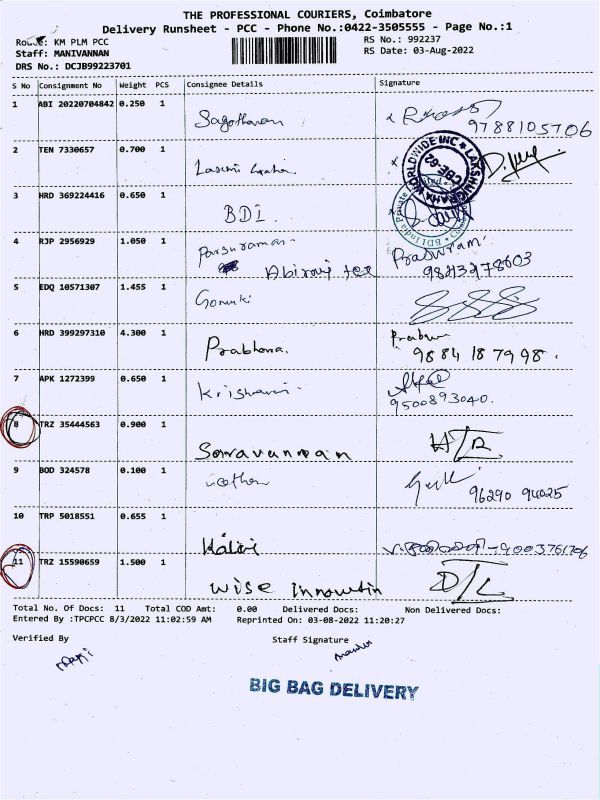 THE PROFESSIONAL COURIERS, Coimbatore
Delivery Runsheet - PCC - Phone No.:0422-3505555 - Page No.:1
Route: KM PLM PCC
RS No.: 992237
Staff: MANIVANNAN
RS Date: 03-Aug-2022
DRS No.: DCJB99223701
S No Consignment No Weight PCS Consignee Details Signature
1 ABI 20220704842 0.250 1
9788105706
2 TEN 7330657 0.700 1
LAKSHMIGRAHA WORLDWIDE INC CBE-62
3 HRD 369224416 0.650 1 BDI.
BDI India Private
4 RJP 2956929 1.050 1 Parsuraman Prasuram
Abirami tex 9843278603
5 EDQ 10571307 1.455 1
6 HRD 399297310 4.300 1 Prabhana.
9884187998.
7 APK 1272399 0.650 1 Krishnani
9500893040.
8 TRZ 35444563 0.900 1
Saravannan
9 BOD 324578 0.100 1
96290 94025
10 TRP 5018551 0.655 1
Kalai 9003761706
11 TRZ 15590659 1.500 1
Wise
Total No. Of Docs: 11 Total COD Amt: 0.00 Delivered Docs: Non Delivered Docs:
Entered By :TPCPCC 8/3/2022 11:02:59 AM Reprinted On: 03-08-2022 11:20:27
Verified By Staff Signature
BIG BAG DELIVERY